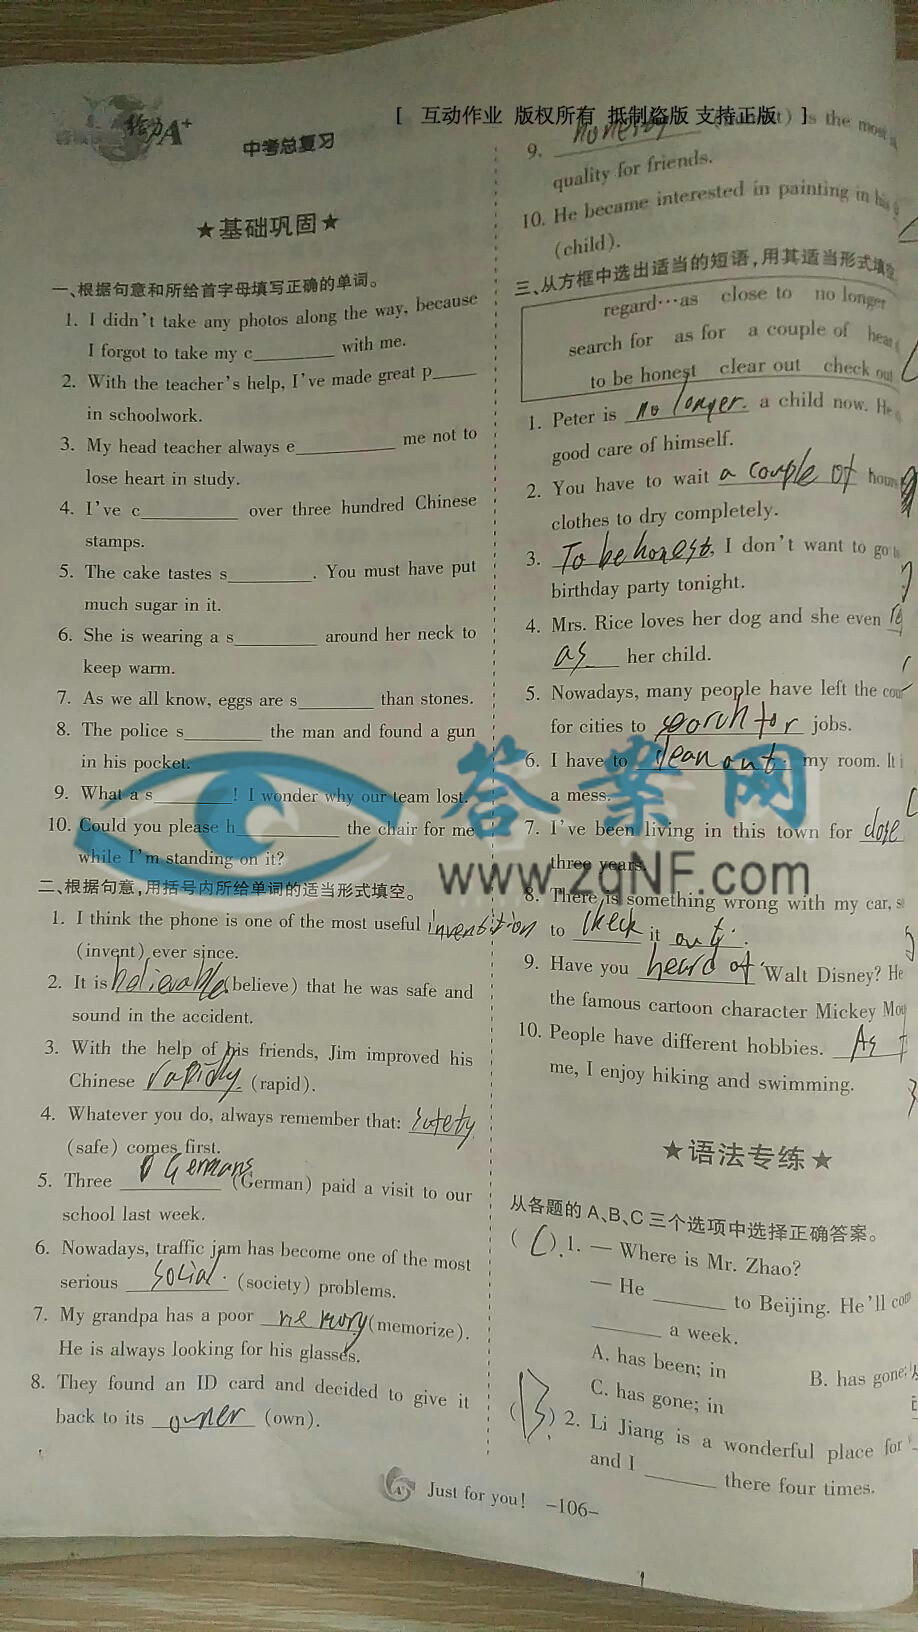 给力A+
中考总复习
[ 互动作业 版权所有 抵制盗版 支持正版 ]
★基础巩固★
一、根据句意和所给首字母填写正确的单词。
1. I didn't take any photos along the way, because
I forgot to take my c_________ with me.
2. With the teacher's help, I've made great p_____
in schoolwork.
3. My head teacher always e___________ me not to
lose heart in study.
4. I've c___________ over three hundred Chinese
stamps.
5. The cake tastes s_________. You must have put
much sugar in it.
6. She is wearing a s_________ around her neck to
keep warm.
7. As we all know, eggs are s________ than stones.
8. The police s_________ the man and found a gun
in his pocket.
9. What a s_________! I wonder why our team lost.
10. Could you please h___________ the chair for me
while I'm standing on it?
二、根据句意,用括号内所给单词的适当形式填空。
1. I think the phone is one of the most useful inventition
(invent) ever since.
2. It is believable (believe) that he was safe and
sound in the accident.
3. With the help of his friends, Jim improved his
Chinese rapidly. (rapid).
4. Whatever you do, always remember that: safety
(safe) comes first.
5. Three Germans (German) paid a visit to our
school last week.
6. Nowadays, traffic jam has become one of the most
serious social. (society) problems.
7. My grandpa has a poor memory (memorize).
He is always looking for his glasses.
8. They found an ID card and decided to give it
back to its owner (own).
9. honesty is the most
quality for friends.
10. He became interested in painting in his
(child).
三、从方框中选出适当的短语,用其适当形式填空
regard…as close to no longer
search for as for a couple of hear
to be honest clear out check out
1. Peter is no longer. a child now. He
good care of himself.
2. You have to wait a couple of hours
clothes to dry completely.
3. To be honest, I don't want to go to
birthday party tonight.
4. Mrs. Rice loves her dog and she even re
as her child.
5. Nowadays, many people have left the cou
for cities to search for jobs.
6. I have to clean out. my room. It i
a mess.
7. I've been living in this town for close
three years.
8. There is something wrong with my car, s
to check it out.
9. Have you heard of Walt Disney? He
the famous cartoon character Mickey Mou
10. People have different hobbies. As f
me, I enjoy hiking and swimming.
答案网
www.zqNF.com
★语法专练★
从各题的A、B、C三个选项中选择正确答案。
( C ). 1. — Where is Mr. Zhao?
— He _______ to Beijing. He'll com
_______ a week.
A. has been; in B. has gone;
C. has gone; in
( B ) 2. Li Jiang is a wonderful place for
and I _______ there four times.
Just for you! -106-